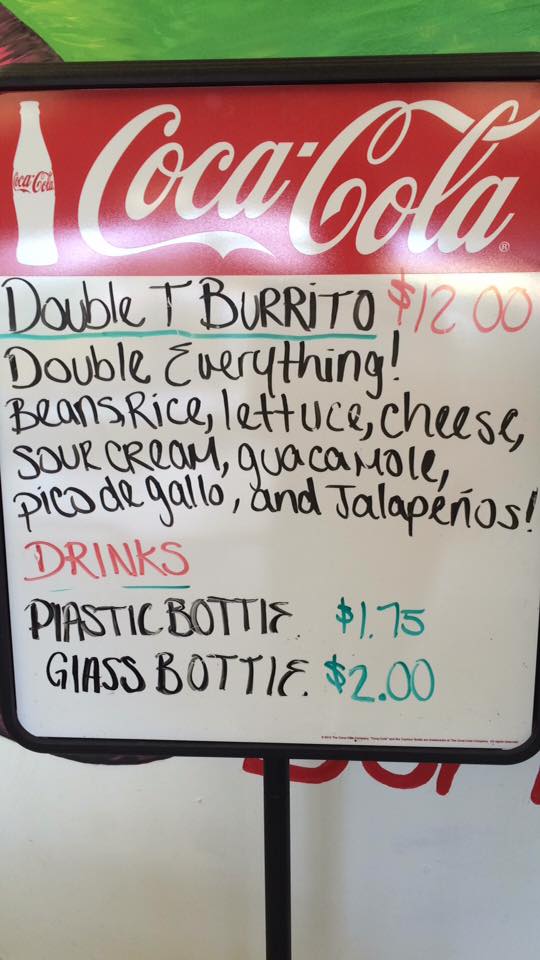 Coca-Cola
Coca-Cola ®
Double T BURRITO $12 00
Double Everything!
Beans, Rice, lettuce, cheese,
SOUR CREAM, guacamole,
pico de gallo, and Jalapeños!
DRINKS
PLASTIC BOTTLE $1.75
GLASS BOTTLE. $2.00